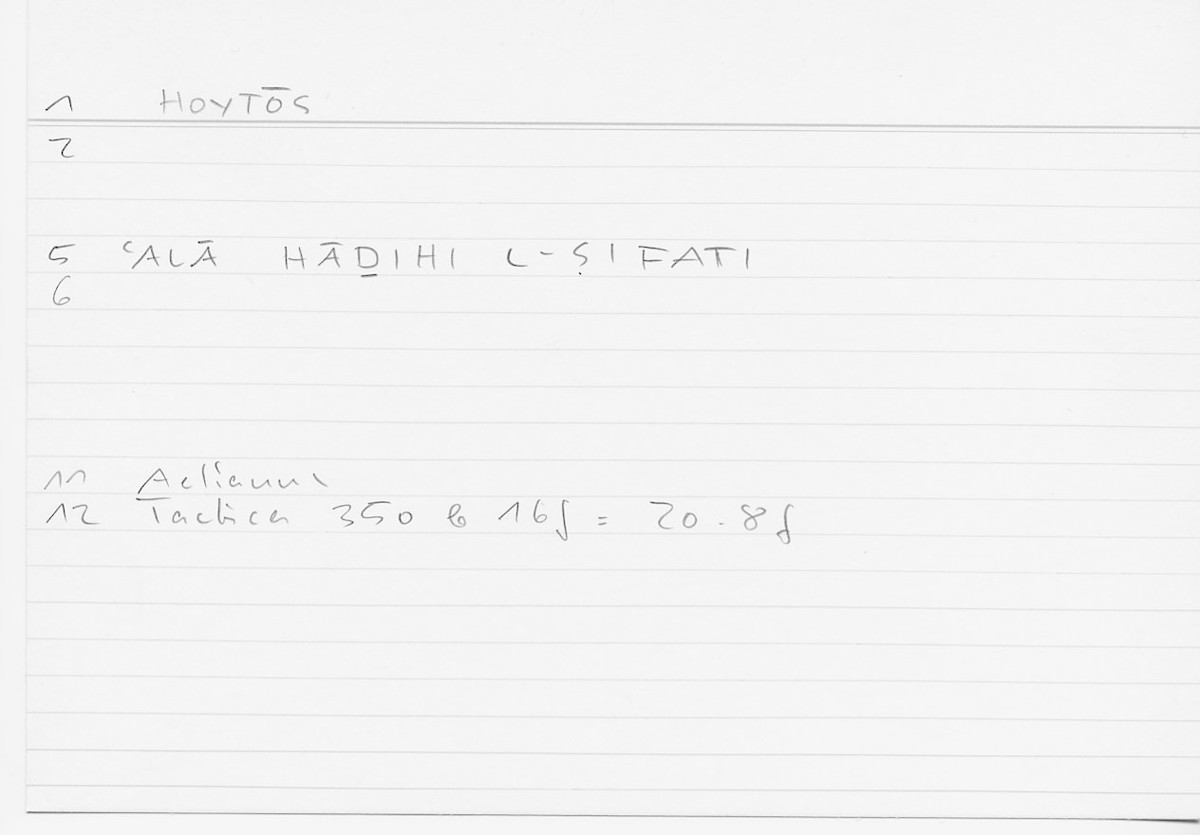 1 HOYTŌS
2
5 ʿALĀ HĀḎIHI L-ṢIFATI
6
11 Aelianus
12 Tactica 350 b 16f = 20.8f